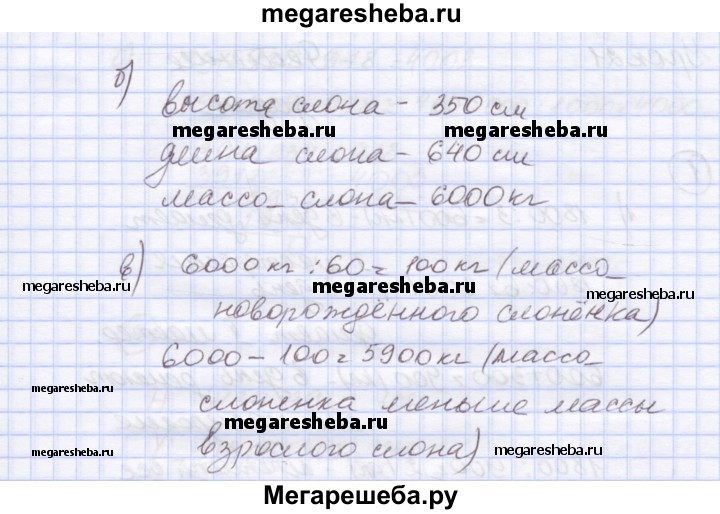 megaresheba.ru
б)
высота слона - 350 см
megaresheba.ru megaresheba.ru
длина слона - 640 см
массо слона - 6000 кг
в) 6000 кг : 60 = 100 кг (массо
megaresheba.ru megaresheba.ru megaresheba.ru
новорождённого слонёнка)
6000 - 100 = 5900 кг (массо
megaresheba.ru
слоненка меньше массы
megaresheba.ru
взрослого слона)
megaresheba.ru megaresheba.ru
Мегарешеба.ру